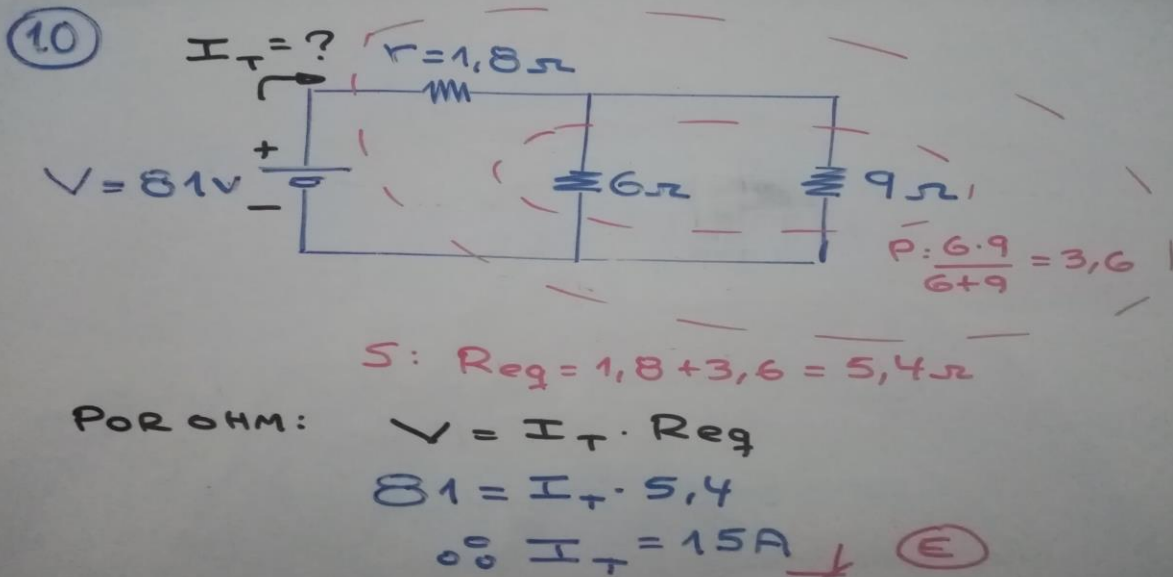 10
I_T = ?
r=1,8Ω
+
V = 81v
−
6Ω
9Ω
P: 6·9/6+9 = 3,6
S: Req = 1,8 + 3,6 = 5,4Ω
POR OHM: V = I_T · Req
81 = I_T · 5,4
∴ I_T = 15A E